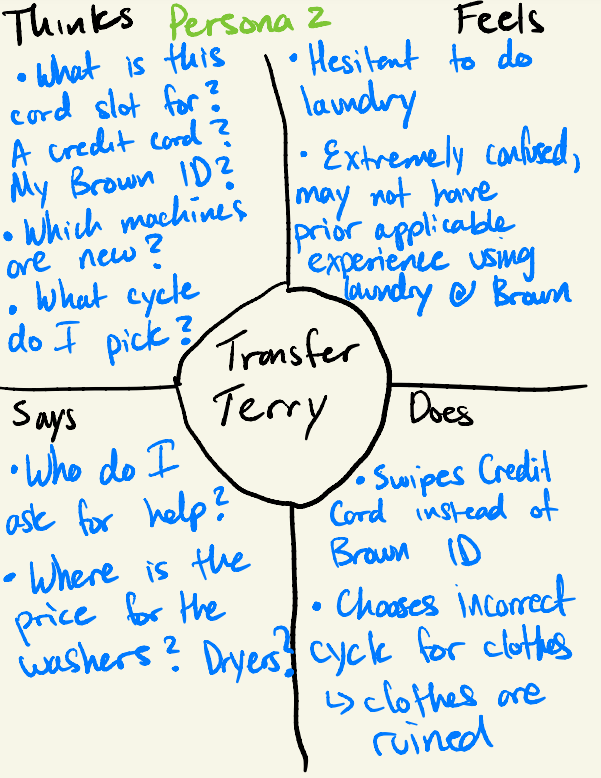 Thinks Persona 2
• What is this
card slot for?
A credit card?
My Brown ID?
• Which machines
are new?
• What cycle
do I pick?
Feels
• Hesitent to do
laundry
• Extremely confused,
may not have
prior applicable
experience using
laundry @ Brown
Transfer
Terry
Says
• Who do I
ask for help?
• Where is the
price for the
washers? Dryers?
Does
• Swipes Credit
Card instead of
Brown ID
• Chooses incorrect
cycle for clothes
↳ clothes are
ruined